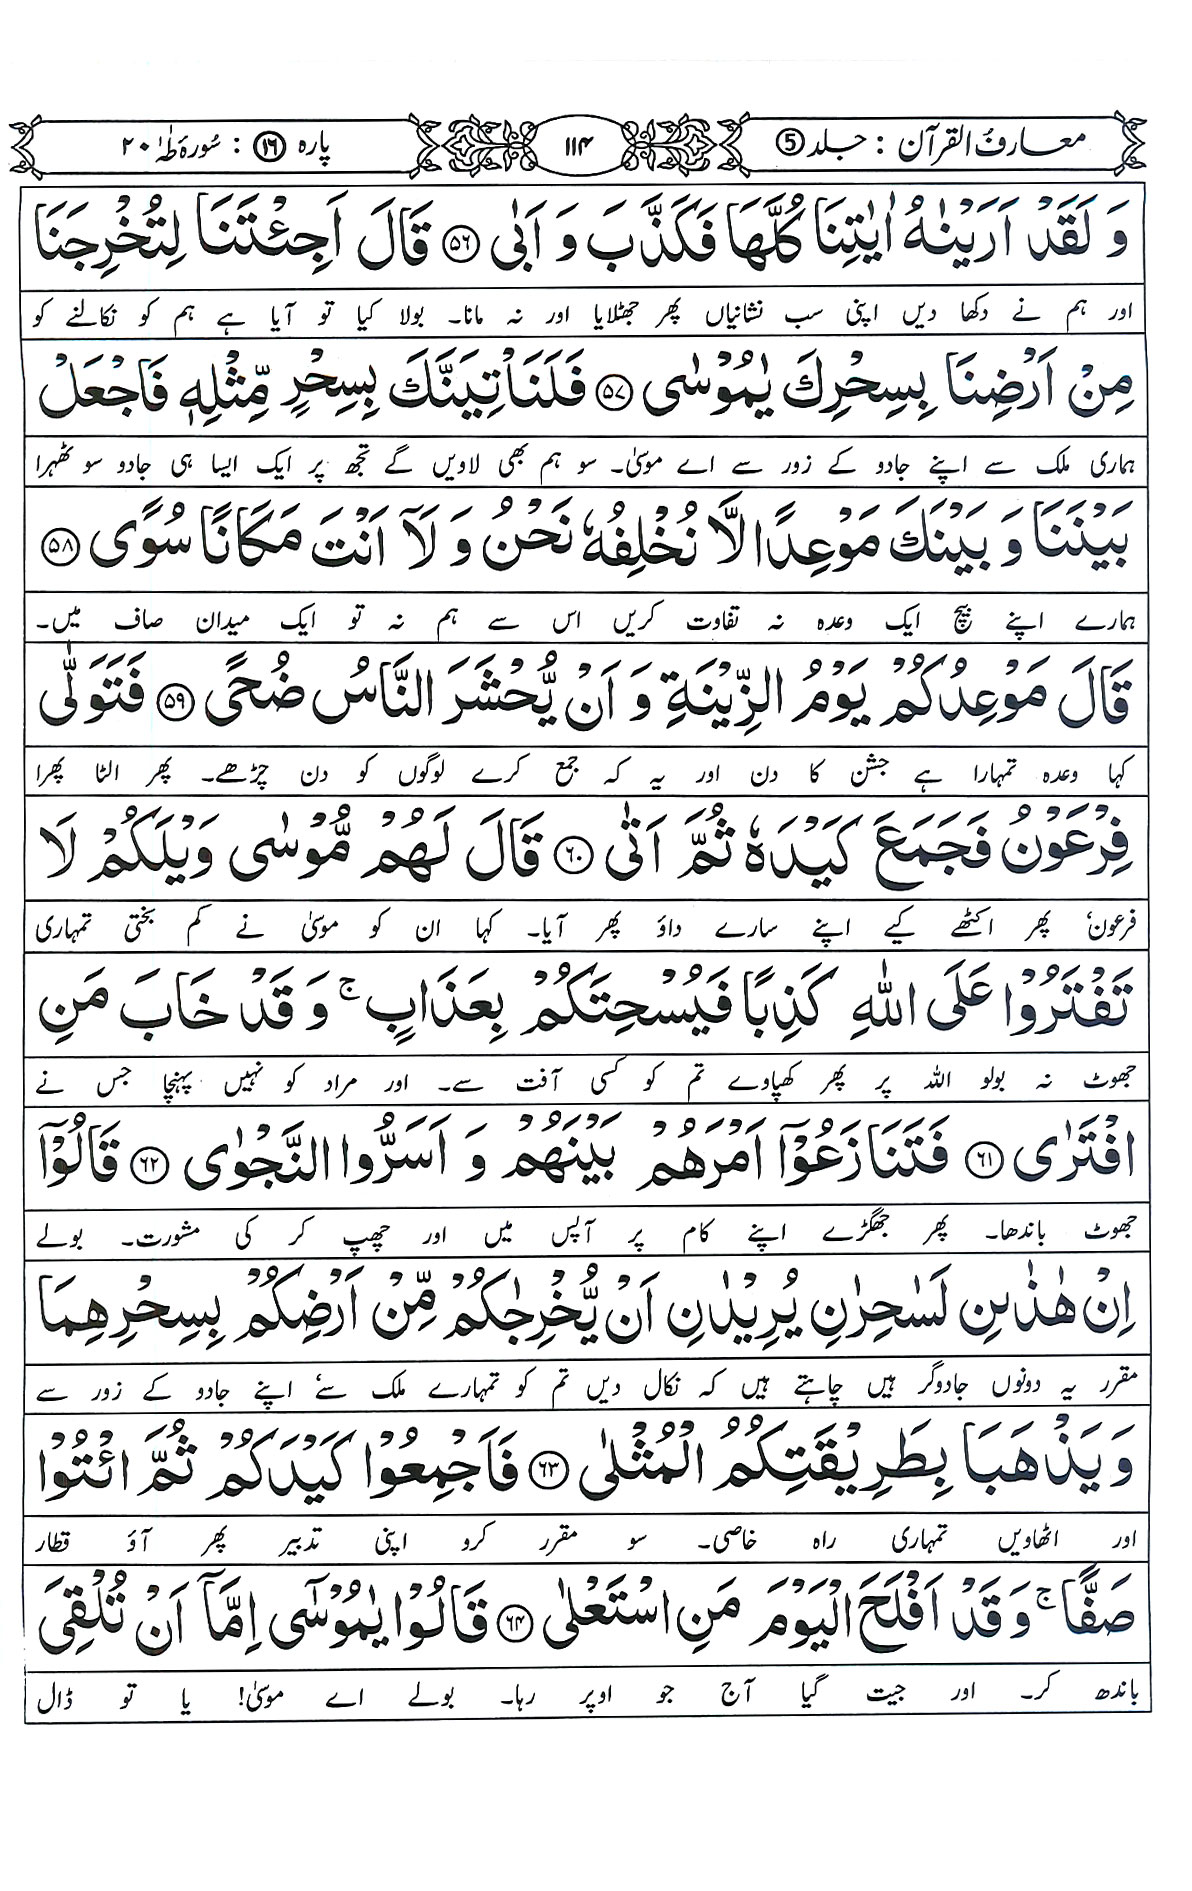 معارف القرآن : جلد ⑤
۱۱۴
پارہ ⑯ : سُورۂ طٰہٰ ۲۰
وَ لَقَدْ اَرَيْنٰهُ اٰيٰتِنَا كُلَّهَا فَكَذَّبَ وَ اَبٰى ۵۶ قَالَ اَجِئْتَنَا لِتُخْرِجَنَا
اور ہم نے دکھا دیں اپنی سب نشانیاں پھر جھٹلایا اور نہ مانا۔ بولا کیا تو آیا ہے ہم کو نکالنے کو
مِنْ اَرْضِنَا بِسِحْرِكَ يٰمُوْسٰى ۵۷ فَلَنَاْتِيَنَّكَ بِسِحْرٍ مِّثْلِهٖ فَاجْعَلْ
ہماری ملک سے اپنے جادو کے زور سے اے موسیٰ۔ سو ہم بھی لاویں گے تجھ پر ایک ایسا ہی جادو سو ٹھہرا
بَيْنَنَا وَ بَيْنَكَ مَوْعِدًا لَّا نُخْلِفُهٗ نَحْنُ وَ لَاۤ اَنْتَ مَكَانًا سُوًى ۵۸
ہمارے اپنے بیچ ایک وعدہ نہ تفاوت کریں اس سے ہم نہ تو ایک میدان صاف میں۔
قَالَ مَوْعِدُكُمْ يَوْمُ الزِّيْنَةِ وَ اَنْ يُّحْشَرَ النَّاسُ ضُحًى ۵۹ فَتَوَلّٰى
کہا وعدہ تمہارا ہے جشن کا دن اور یہ کہ جمع کرے لوگوں کو دن چڑھے۔ پھر الٹا پھرا
فِرْعَوْنُ فَجَمَعَ كَيْدَهٗ ثُمَّ اَتٰى ۶۰ قَالَ لَهُمْ مُّوْسٰى وَيْلَكُمْ لَا
فرعون پھر اکٹھے کیے اپنے سارے داؤ پھر آیا۔ کہا ان کو موسیٰ نے کم بختی تمہاری
تَفْتَرُوْا عَلَى اللّٰهِ كَذِبًا فَيُسْحِتَكُمْ بِعَذَابٍ ۚ وَ قَدْ خَابَ مَنِ
جھوٹ نہ بولو اللہ پر پھر کھپاوے تم کو کسی آفت سے۔ اور مراد کو نہیں پہنچا جس نے
افْتَرٰى ۶۱ فَتَنَازَعُوْۤا اَمْرَهُمْ بَيْنَهُمْ وَ اَسَرُّوا النَّجْوٰى ۶۲ قَالُوْۤا
جھوٹ باندھا۔ پھر جھگڑے اپنے کام پر آپس میں اور چھپ کر کی مشورت۔ بولے
اِنْ هٰذٰىنِ لَسٰحِرٰنِ يُرِيْدٰنِ اَنْ يُّخْرِجٰكُمْ مِّنْ اَرْضِكُمْ بِسِحْرِهِمَا
مقرر یہ دونوں جادوگر ہیں چاہتے ہیں کہ نکال دیں تم کو تمہارے ملک سے اپنے جادو کے زور سے
وَ يَذْهَبَا بِطَرِيْقَتِكُمُ الْمُثْلٰى ۶۳ فَاَجْمِعُوْا كَيْدَكُمْ ثُمَّ ائْتُوْا
اور اٹھاویں تمہاری راہ خاصی۔ سو مقرر کرو اپنی تدبیر پھر آؤ قطار
صَفًّا ۚ وَ قَدْ اَفْلَحَ الْيَوْمَ مَنِ اسْتَعْلٰى ۶۴ قَالُوْا يٰمُوْسٰۤى اِمَّاۤ اَنْ تُلْقِيَ
باندھ کر۔ اور جیت گیا آج جو اوپر رہا۔ بولے اے موسیٰ! یا تو ڈال